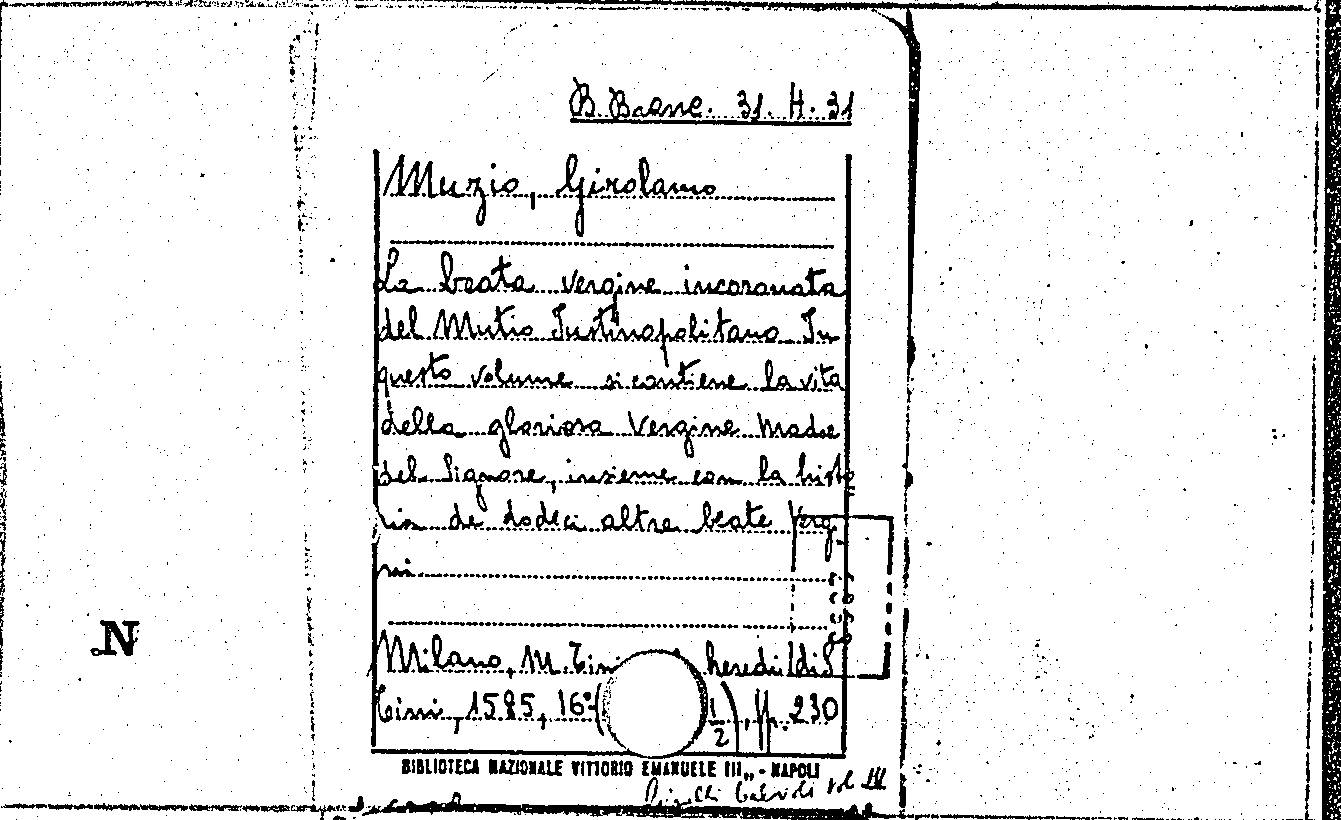 B. Branc. 31. H. 31
Muzio, Girolamo
La beata vergine incoronata
del Mutio Iustinopolitano. In
questo volume si contiene la vita
della gloriosa Vergine Madre
del Signore, insieme con la histo
ria de dodeci altre beate Vergi
ni
N
Milano, M. Tini heredi di S.
Tini, 1585, 16° ( 1/2), ff. 230
BIBLIOTECA NAZIONALE VITTORIO EMANUELE III„ - NAPOLI
vol III